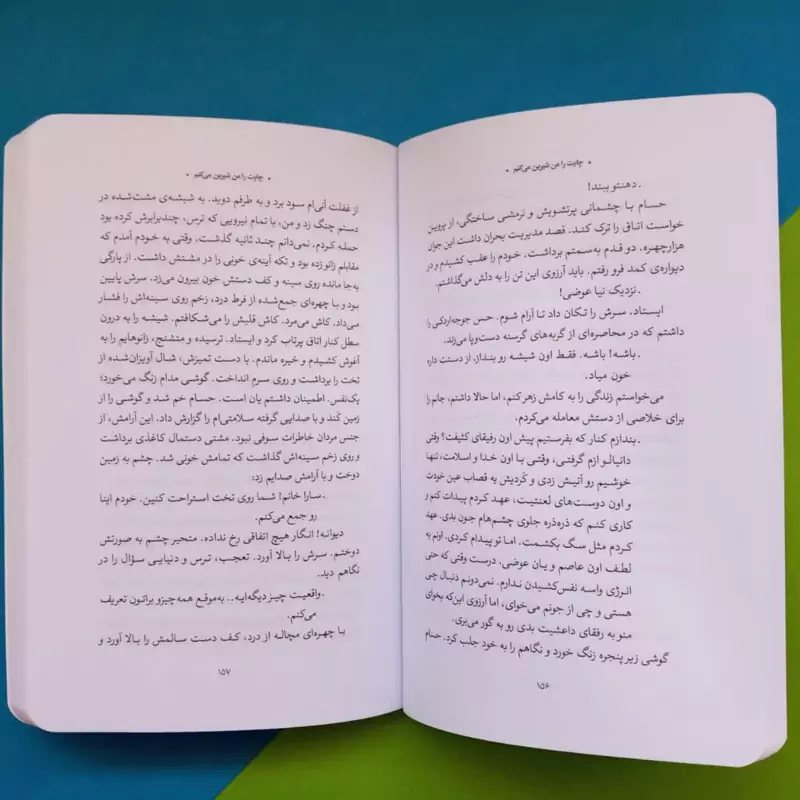 • چایت را من شیرین می‌کنم •
. دهنتو ببند!
حسام با چشمانی پرتشویش و نرمشی ساختگی، از پروین
خواست اتاق را ترک کند. قصد مدیریت بحران داشت این جوان
هزارچهره. دو قدم به‌سمتم برداشت. خودم را عقب کشیدم و در
دیواره‌ی کمد فرو رفتم. باید آرزوی این تن را به دلش می‌گذاشتم.
. نزدیک نیا عوضی!
ایستاد. سرش را تکان داد تا آرام شوم. حس جوجه‌اردکی را
داشتم که در محاصره‌ی گربه‌های گرسنه دست‌وپا می‌زند.
. باشه! باشه. فقط اون شیشه رو بنداز. از دستت داره
خون میاد.
می‌خواستم زندگی را به کامش زهر کنم، اما حالا داشتم، جانم را
برای خلاصی از دستش معامله می‌کردم.
. بندازم کنار که بفرستیم پیش اون رفیقای کثیفت؟ وقتی
دانیالو ازم گرفتی، وقتی با اون خدا و اسلامت، تنها
خوشیم رو آتیش زدی و کَردیش یه قصاب عین خودت
و اون دوست‌های لعنتیت، عهد کردم پیدات کنم و
کاری کنم که ذره‌ذره جلوی چشم‌هام جون بدی. عهد
کردم مثل سگ بکشمت. اما تو پیدام کردی. اونم به
لطف اون عاصم و یان عوضی. درست وقتی که حتی
انرژی واسه نفس‌کشیدن ندارم. نمی‌دونم دنبال چی
هستی و چی از جونم می‌خوای، اما آرزوی این‌که بخوای
منو به رفقای داعشیت بدی رو به گور می‌بری.
گوشی زیر پنجره زنگ خورد و نگاهم را به خود جلب کرد. حسام
۱۵۶
• چایت را من شیرین می‌کنم •
از غفلت آنی‌ام سود برد و به طرفم دوید. به شیشه‌ی مشت‌شده در
دستم چنگ زد و من، با تمام نیرویی که ترس، چندبرابرش کرده بود
حمله کردم. نمی‌دانم چند ثانیه گذشت. وقتی به خودم آمدم که
مقابلم زانو زده بود و تکه آینه‌ی خونی را در مشتش داشت. از پارگی
به‌جا مانده روی سینه و کف دستش خون بیرون می‌زد. سرش پایین
بود و با چهره‌ای جمع‌شده از فرط درد، زخم روی سینه‌اش را فشار
می‌داد. کاش می‌مرد. کاش قلبش را می‌شکافتم. شیشه را به درون
سطل کنار اتاق پرتاب کرد و ایستاد. ترسیده و متشنج، زانوهایم را به
آغوش کشیدم و خیره ماندم. با دست تمیزش، شال آویزان‌شده از
تخت را برداشت و روی سرم انداخت. گوشی مدام زنگ می‌خورد؛
یک‌نفس. اطمینان داشتم یان است. حسام خم شد و گوشی را از
زمین کَند و با صدایی گرفته سلامتی‌ام را گزارش داد. این آرامش، از
جنس مردان خاطرات سوفی نبود. مشتی دستمال کاغذی برداشت
و روی زخم سینه‌اش گذاشت که تمامش خونی شد. چشم به زمین
دوخت و با آرامش صدایم زد:
. سارا خانم! شما روی تخت استراحت کنین. خودم اینا
رو جمع می‌کنم.
دیوانه! انگار هیچ اتفاقی رخ نداده. متحیر چشم به صورتش
دوختم. سرش را بالا آورد. تعجب، ترس و دنیایی سؤال را در
نگاهم دید.
. واقعیت چیز دیگه‌ایه.. به‌موقع همه‌چیزو براتون تعریف
می‌کنم.
با چهره‌ای مچاله از درد، کف دست سالمش را بالا آورد و
۱۵۷